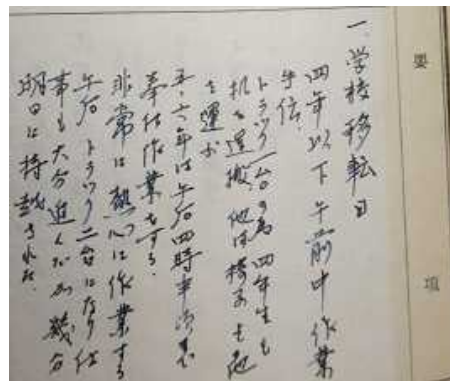 要項
一、学校移転日
四年以下午前中作業
午后、
トラック一台の為四年生も
机を運搬 他は椅子其他
を運ぶ
五、六年は午后四時半頃まで
奉仕作業をする、
非常に熱心に作業する
午后トラック二台になり仕
事も大分進んだが幾分
明日に持越された、